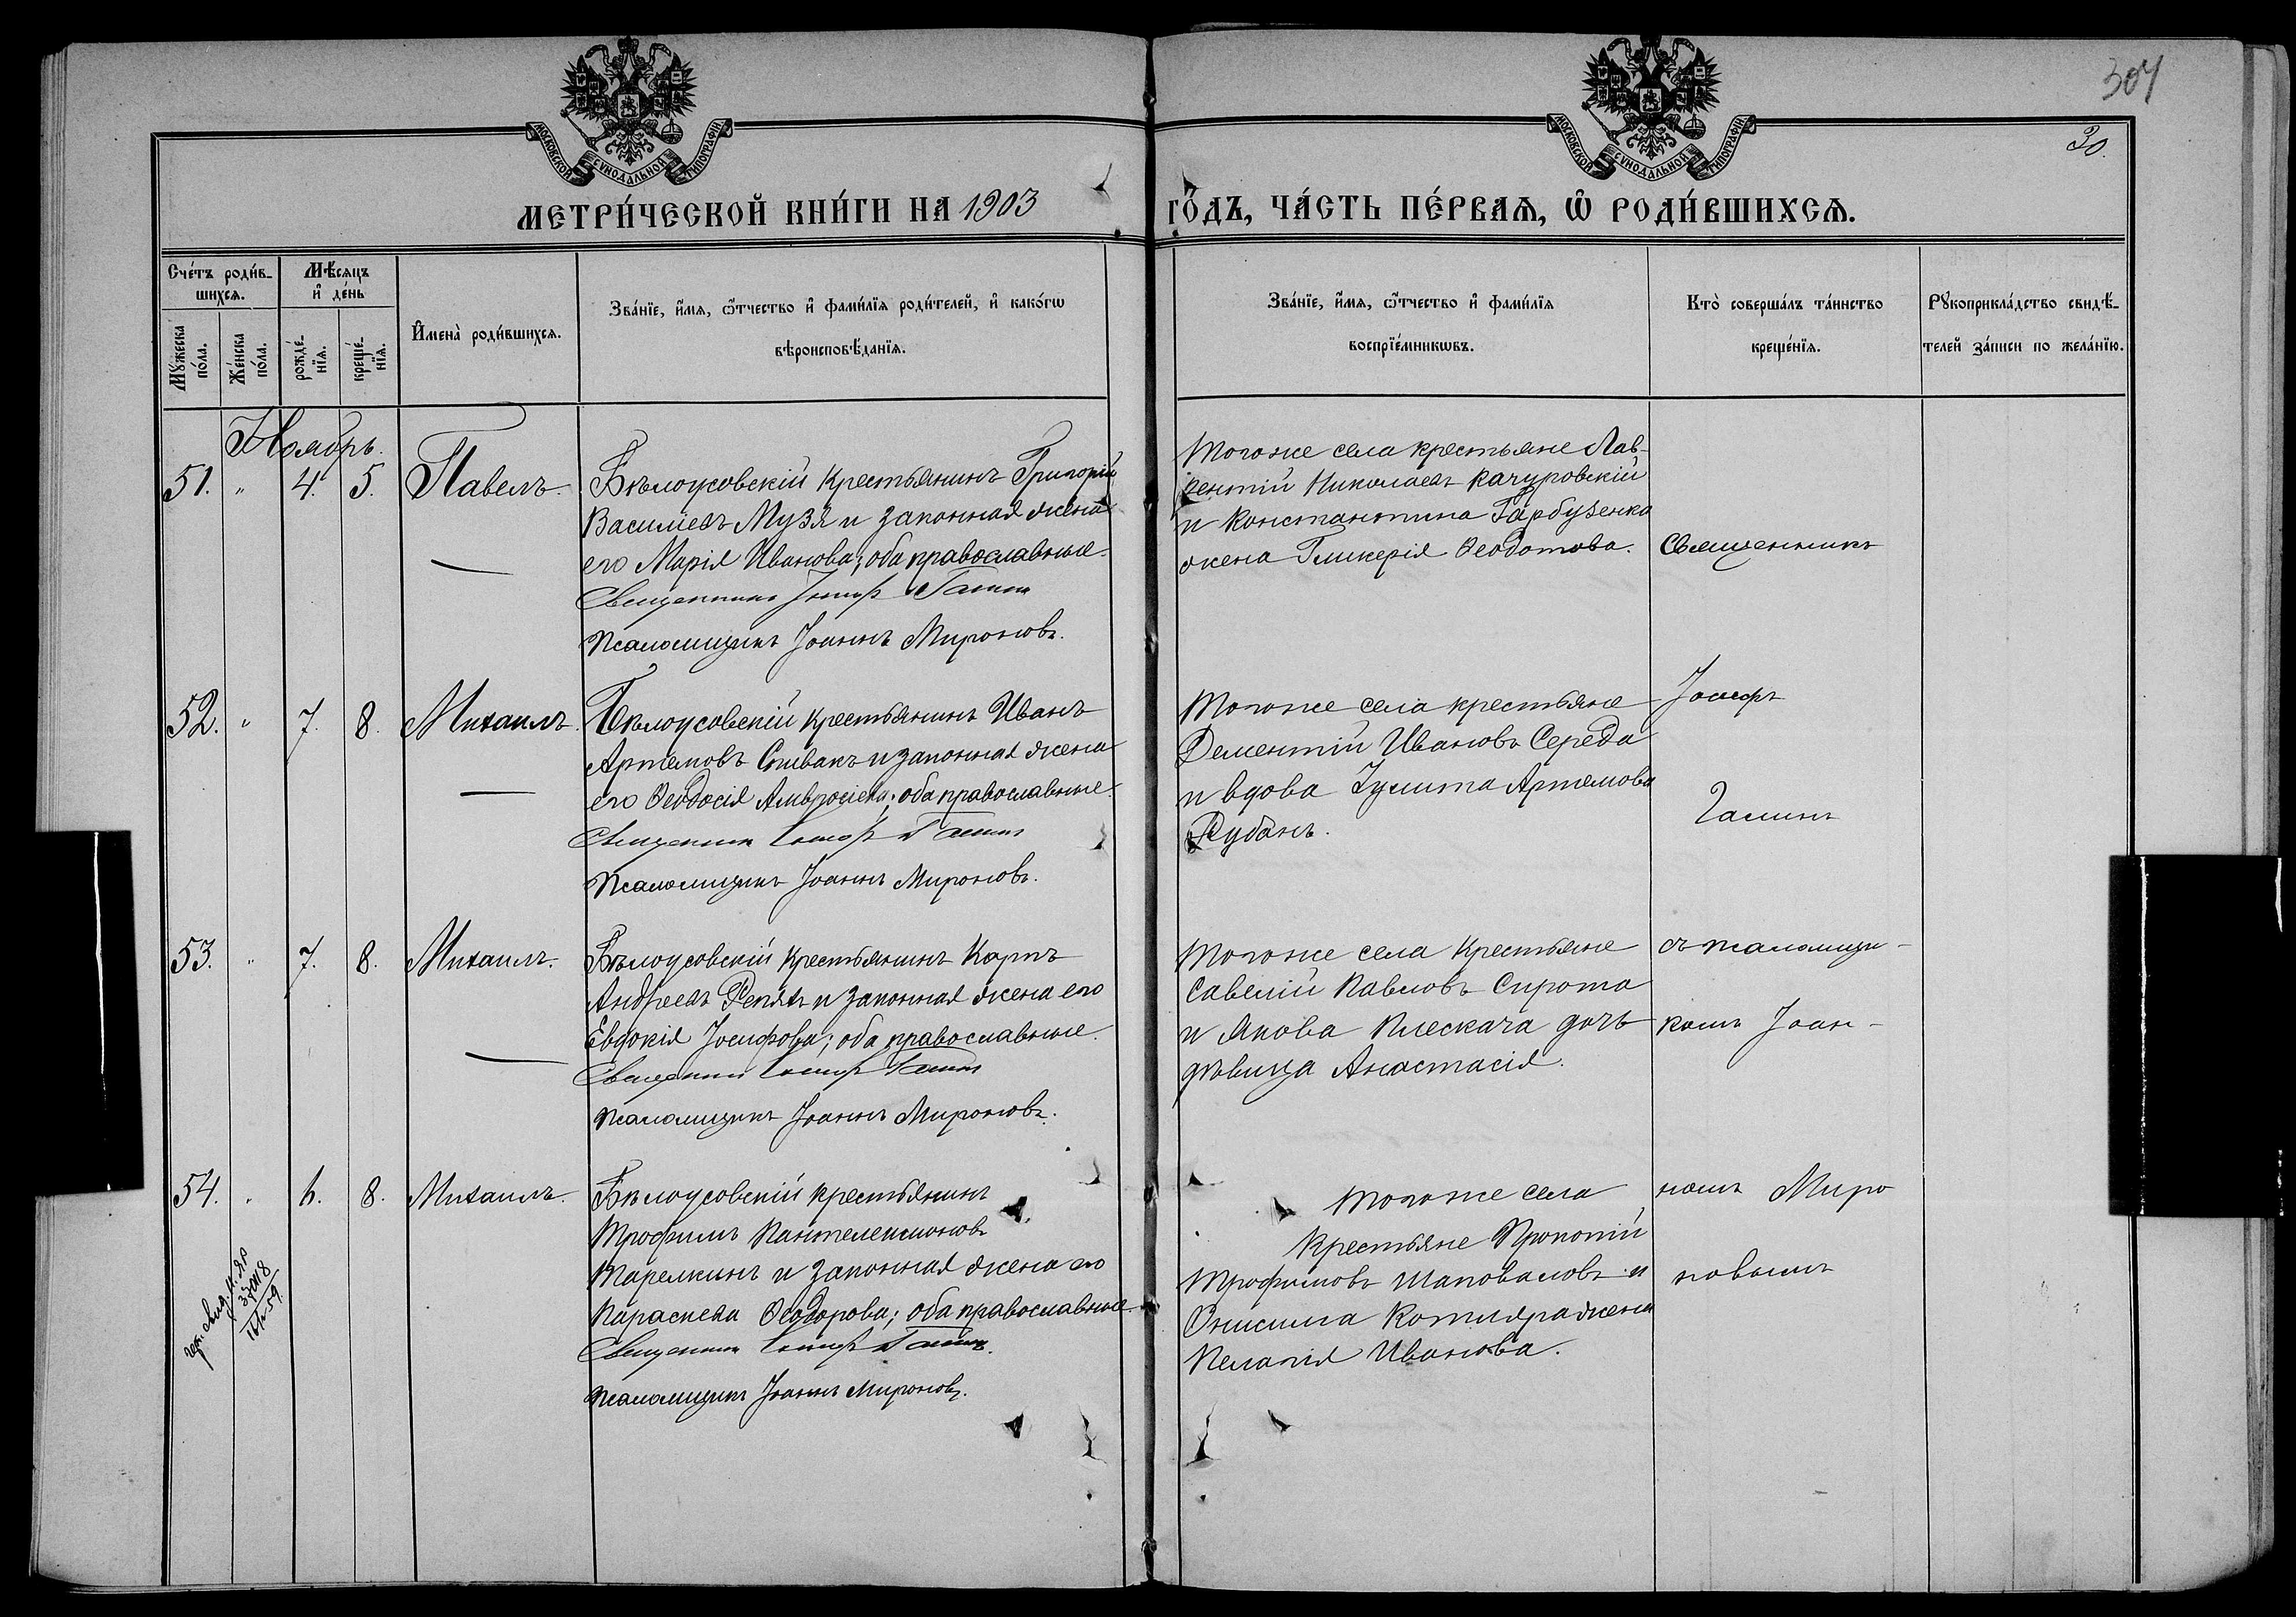 304
30.
МОСКОВСКОЙ СѴНОДАЛЬНОЙ ТИПОГРАФІИ
МОСКОВСКОЙ СѴНОДАЛЬНОЙ ТИПОГРАФІИ
МЕТРИ́ЧЕСКОЙ КНИ́ГИ НА 1903 ГО́ДЪ, ЧА́СТЬ ПЕ́РВАѦ, Ѡ РОДИ́ВШИХСѦ.
Сче́тъ роди́в-
шихсѧ.
Мꙋ́жеска по́ла.
Же́нска по́ла.
Мѣ́сѧцъ
и҆ де́нь
рожде́-
нїѧ.
креще́-
нїѧ.
И҆мена̀ роди́вшихсѧ.
Зва́нїе, и҆́мѧ, ѻ҆́тчество и҆ фами́лїѧ роди́телей, и҆ како́гѡ
вѣроисповѣ́данїѧ.
Зва́нїе, и҆́мѧ, ѻ҆́тчество и҆ фами́лїѧ
воспрїе́мникѡвъ.
Кто̀ соверша́лъ та́инство
креще́нїѧ.
Рꙋкоприкла́дство свидѣ́-
телей за́писи по жела́нїю.
Ноябрь.
51. " 4. 5. Павелъ.
Бѣлоусовскій крестьянинъ Григорій
Васильевъ Музя и законная жена
его Марія Иванова; оба православные.
Священникъ Іосифъ Галинъ
Псаломщикъ Іоаннъ Мироновъ.
Тогоже села крестьяне Лав-
рентій Николаевъ Качуровскій
и Константина Гарбузенко
жена Гликерія Ѳеодотова.
Священникъ
52. " 7. 8. Михаилъ.
Бѣлоусовскій крестьянинъ Иванъ
Артемовъ Спивакъ и законная жена
его Ѳеодосія Амвросіева; оба православные.
Священникъ Іосифъ Галинъ
Псаломщикъ Іоаннъ Мироновъ.
Тогоже села крестьяне
Дементій Ивановъ Середа
и вдова Іулита Артемова
Рубанъ.
Іосифъ
Галинъ
53. " 7. 8. Михаилъ.
Бѣлоусовскій крестьянинъ Карпъ
Андреевъ Репяхъ и законная жена его
Евдокія Іосифова; оба православные.
Священникъ Іосифъ Галинъ
Псаломщикъ Іоаннъ Мироновъ.
Тогоже села крестьяне
Савелій Павловъ Сирота
и Якова Плескача дочь
дѣвица Анастасія.
съ псаломщи-
комъ Іоан-
54. " 6. 8. Михаилъ.
Бѣлоусовскій крестьянинъ
Трофимъ Пантелеимоновъ
Тарелкинъ и законная жена его
Параскева Ѳеодорова; оба православные.
Священникъ Іосифъ Галинъ.
Псаломщикъ Іоаннъ Мироновъ.
Тогоже села
крестьяне Прокопій
Трофимовъ Шаповаловъ и
Онисима Котляра жена
Пелагія Иванова.
номъ Миро
новымъ